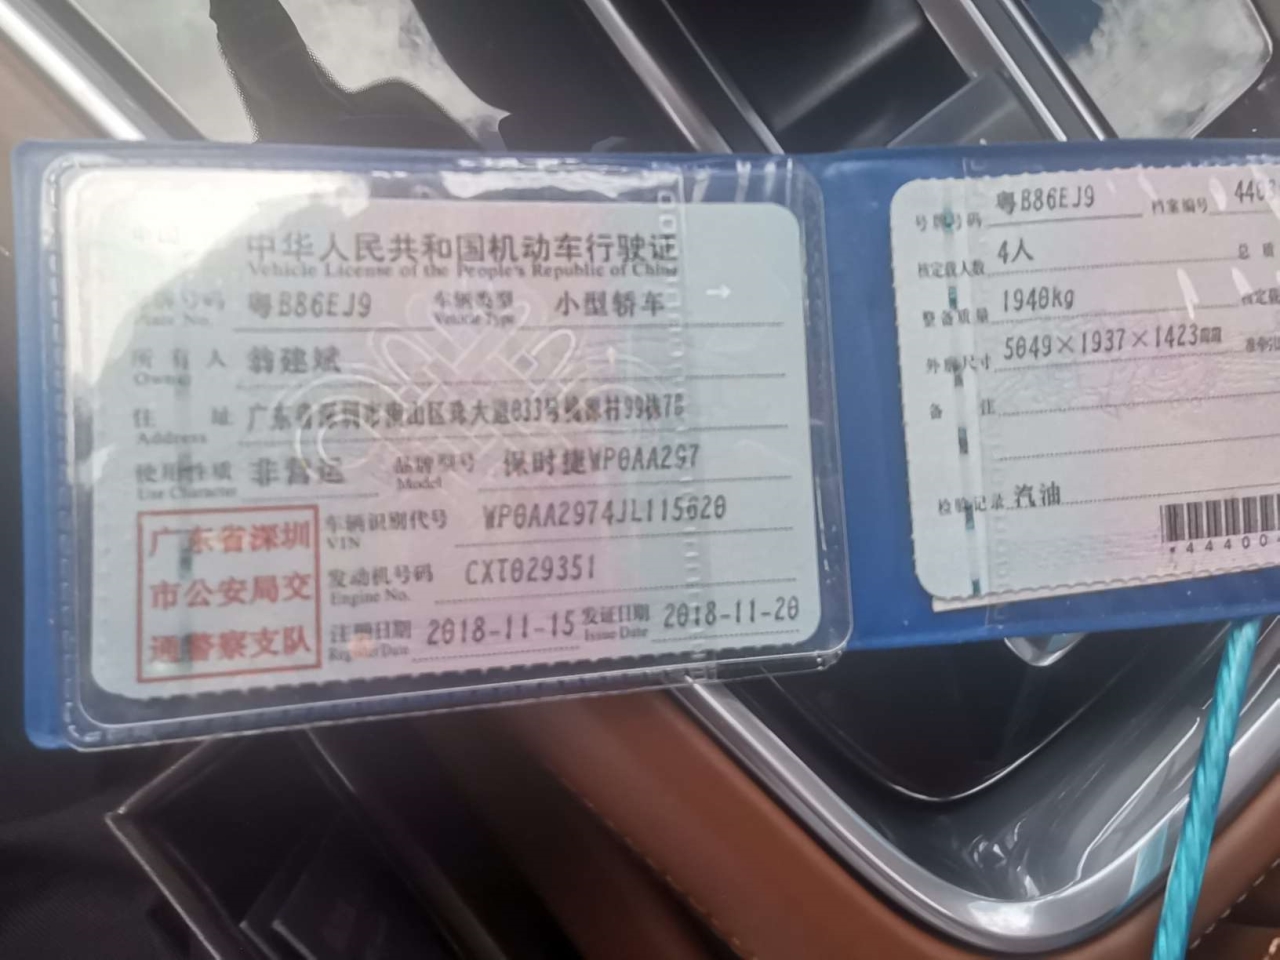 中华人民共和国机动车行驶证
Vehicle License of the People's Republic of China
号码 粤B86EJ9 车辆类型 小型轿车
Plate No. Vehicle Type
所有人 翁建斌
Owner
住址 广东省深圳市南山区 大道033号 村99栋7
Address
使用性质 非营运 品牌型号 保时捷WP0AA297
Use Character Model
车辆识别代号 WP0AA2974JL115620
VIN
发动机号码 CXT029351
Engine No.
注册日期 2018-11-15 发证日期 2018-11-20
Register Date Issue Date
广东省深圳
市公安局交
通警察支队
号牌号码 粤B86EJ9 档案编号 440
核定载人数 4人 总质
整备质量 1940kg 核定
外廓尺寸 5049×1937×1423
备注
检验记录 汽油
*44400